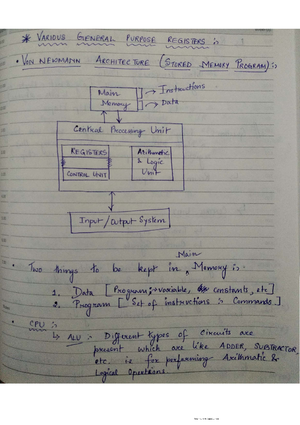 * VARIOUS GENERAL PURPOSE REGISTERS :-
• VON NEWMANN ARCHITECTURE (STORED MEMORY PROGRAM) :-
Main Memory
→ Instructions
→ Data
Central Processing Unit
REGISTERS
CONTROL UNIT
Arithmatic & Logic Unit
Input/Output System
• Two things to be kept in Main Memory :-
1. Data [Program :- variable, constants, etc]
2. Program [Set of instructions :- Commands]
• CPU :-
↳ ALU :- Different types of Circuits are
present which are like ADDER, SUBSTRACTOR,
etc. is for performing Arithmatic &
Logical Operations.